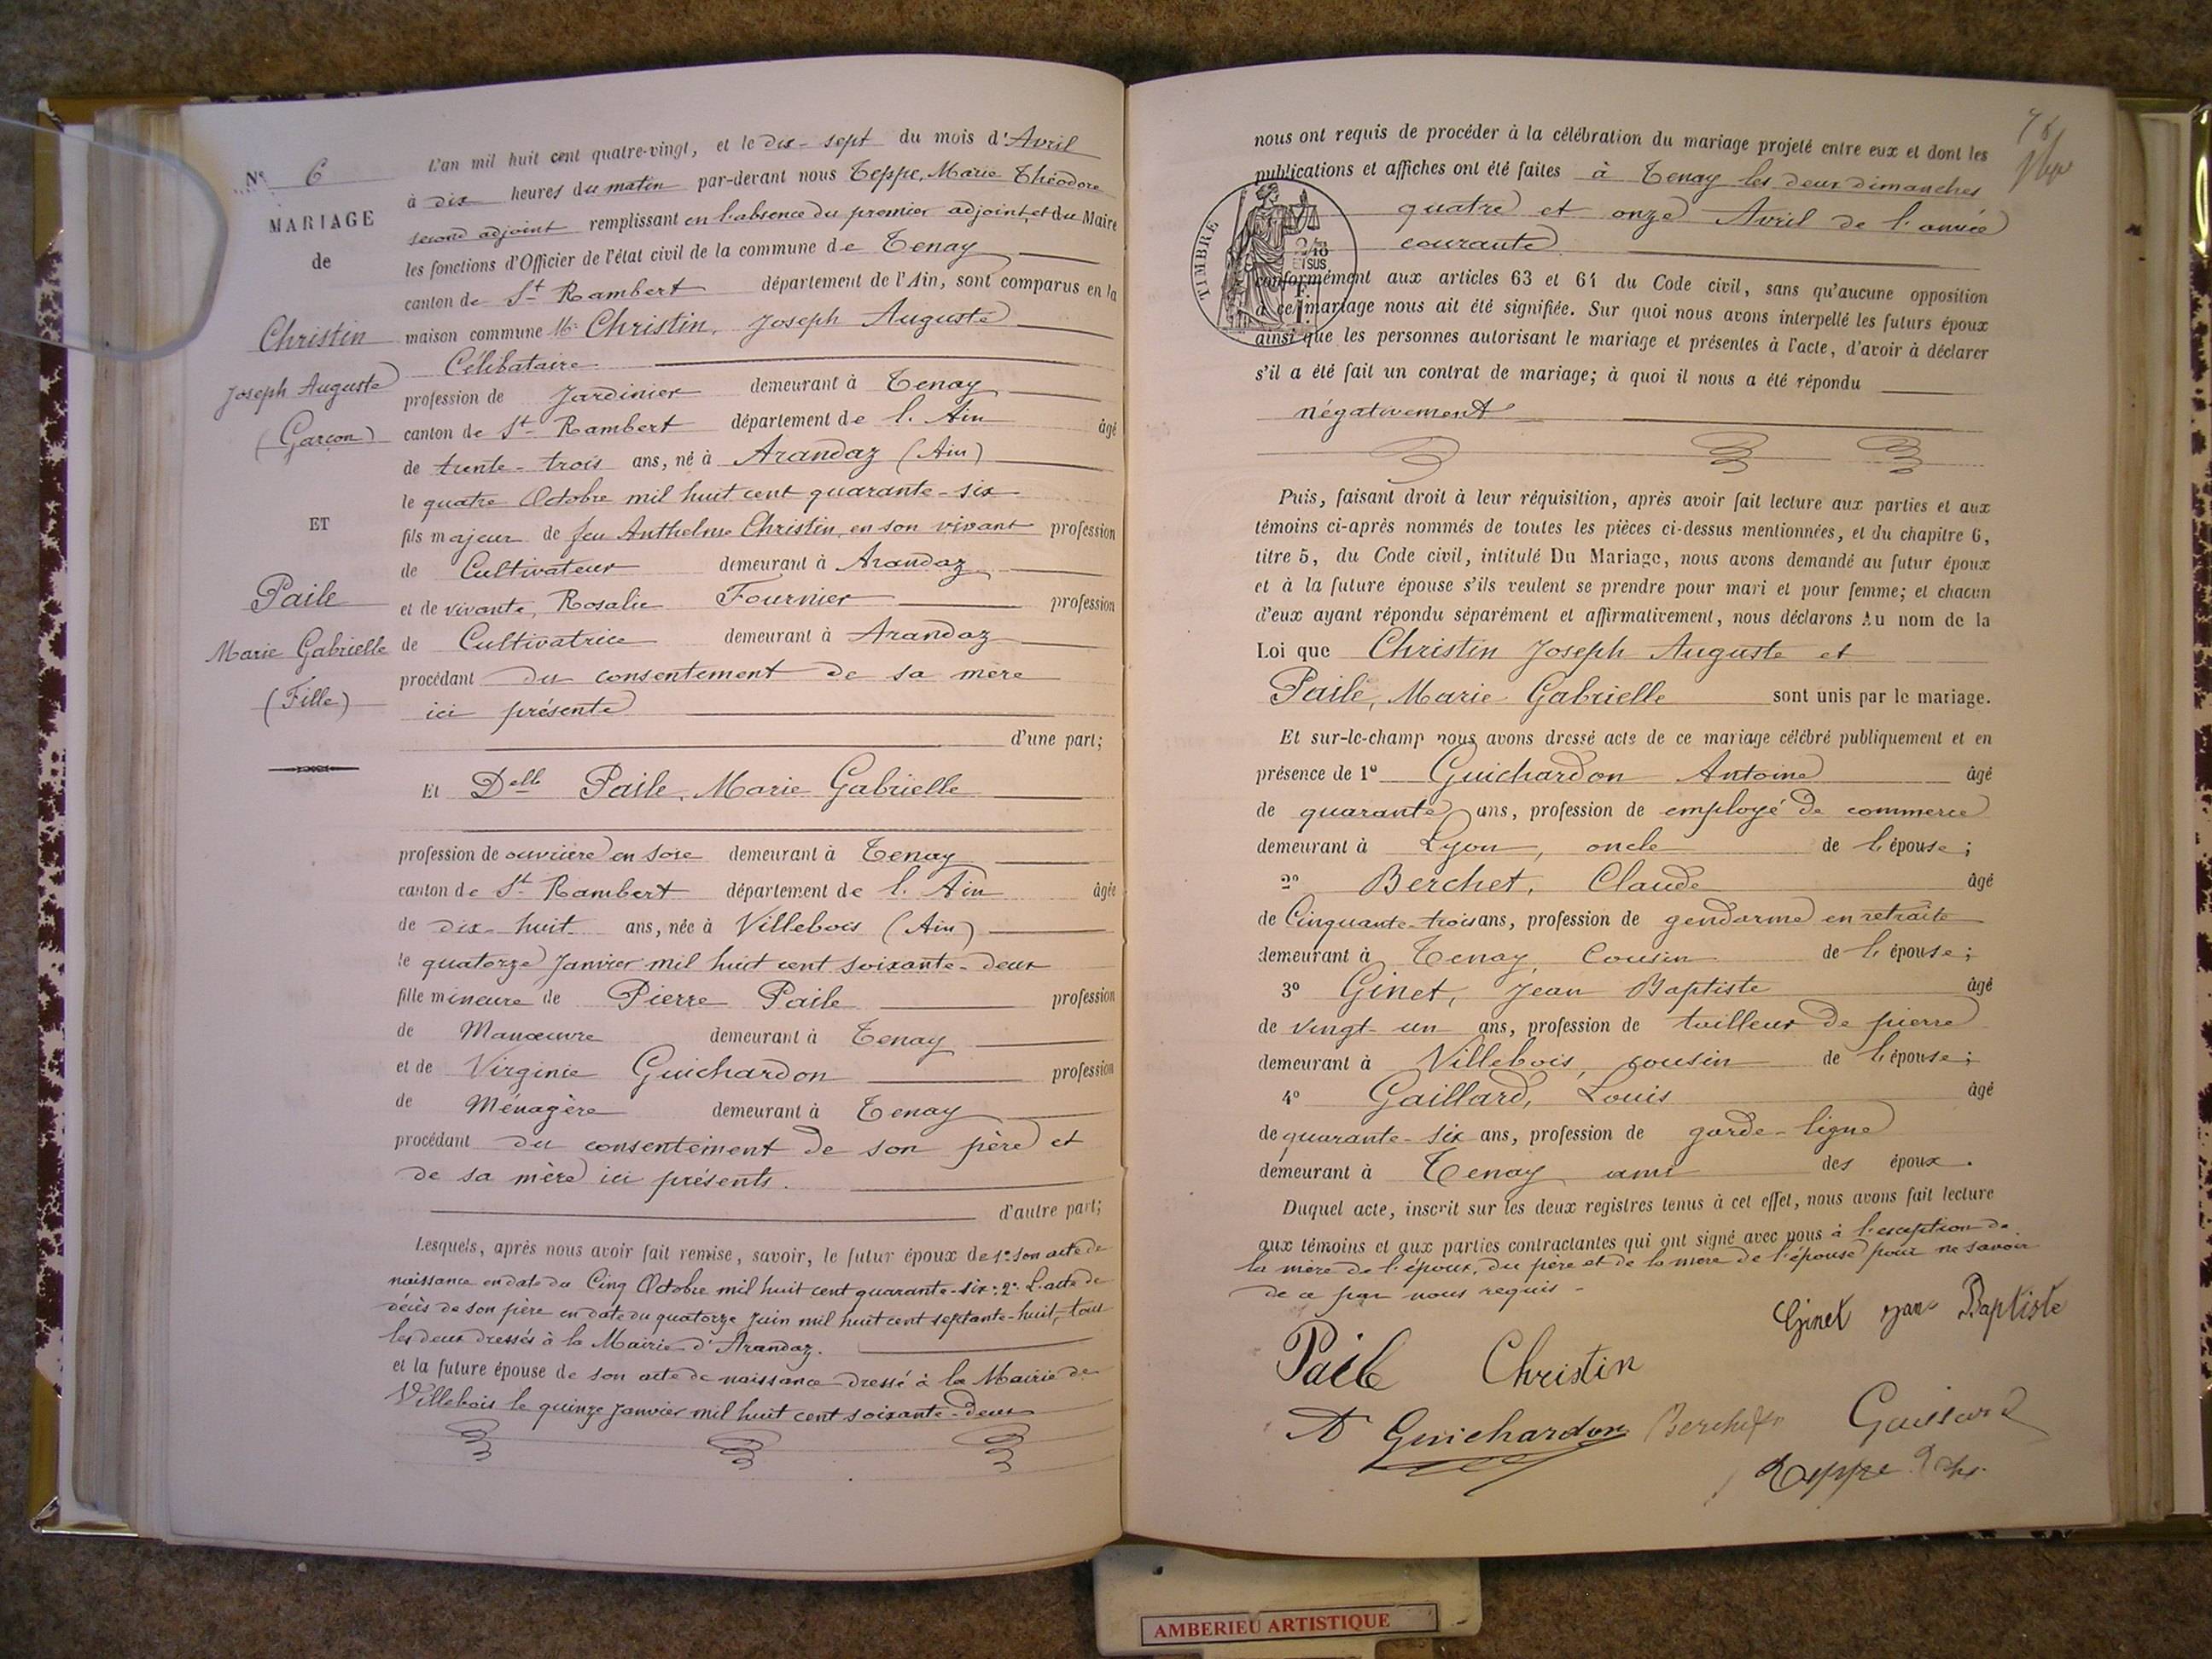 N° 6
MARIAGE
de
Christin
Joseph Auguste
(Garçon)
ET
Paile
Marie Gabrielle
(Fille)
L'an mil huit cent quatre-vingt, et le dix-sept du mois d'Avril
à dix heures du matin par-devant nous Teppe, Marie Théodore
second adjoint remplissant en l'absence du premier adjoint, et du Maire
les fonctions d'Officier de l'état civil de la commune de Tenay
canton de St Rambert département de l'Ain, sont comparus en la
maison commune Mr Christin, Joseph Auguste
Célibataire
profession de Jardinier demeurant à Tenay
canton de St Rambert département de l'Ain âgé
de trente-trois ans, né à Arandaz (Ain)
le quatre Octobre mil huit cent quarante-six
fils majeur de feu Anthelme Christin, en son vivant profession
de Cultivateur demeurant à Arandaz
et de vivante, Rosalie Fournier profession
de Cultivatrice demeurant à Arandaz
procédant du consentement de sa mère
ici présente
d'une part;
Et Delle Paile, Marie Gabrielle
profession de ouvrière en soie demeurant à Tenay
canton de St Rambert département de l'Ain âgée
de dix-huit ans, née à Villebois (Ain)
le quatorze Janvier mil huit cent soixante-deux
fille mineure de Pierre Paile profession
de Manœuvre demeurant à Tenay
et de Virginie Guichardon profession
de Ménagère demeurant à Tenay
procédant du consentement de son père et
de sa mère ici présents.
d'autre part;
Lesquels, après nous avoir fait remise, savoir, le futur époux de 1° son acte de
naissance en date du Cinq Octobre mil huit cent quarante-six; 2° L'acte de
décès de son père en date du quatorze Juin mil huit cent septante-huit, tous
les deux dressés à la Mairie d'Arandaz.
et la future épouse de son acte de naissance dressé à la Mairie de
Villebois le quinze Janvier mil huit cent soixante-deux
nous ont requis de procéder à la célébration du mariage projeté entre eux et dont les
publications et affiches ont été faites à Tenay les deux dimanches
quatre et onze Avril de l'année
courante
TIMBRE
2/10
ET SUS
conformément aux articles 63 et 64 du Code civil, sans qu'aucune opposition
à ce mariage nous ait été signifiée. Sur quoi nous avons interpellé les futurs époux
ainsi que les personnes autorisant le mariage et présentes à l'acte, d'avoir à déclarer
s'il a été fait un contrat de mariage; à quoi il nous a été répondu
négativement
Puis, faisant droit à leur réquisition, après avoir fait lecture aux parties et aux
témoins ci-après nommés de toutes les pièces ci-dessus mentionnées, et du chapitre 6,
titre 5, du Code civil, intitulé Du Mariage, nous avons demandé au futur époux
et à la future épouse s'ils veulent se prendre pour mari et pour femme; et chacun
d'eux ayant répondu séparément et affirmativement, nous déclarons Au nom de la
Loi que Christin Joseph Auguste et
Paile, Marie Gabrielle sont unis par le mariage.
Et sur-le-champ nous avons dressé acte de ce mariage célébré publiquement et en
présence de 1° Guichardon Antoine âgé
de quarante ans, profession de employé de commerce
demeurant à Lyon, oncle de l'épouse;
2° Berchet, Claude âgé
de Cinquante-trois ans, profession de gendarme en retraite
demeurant à Tenay, Cousin de l'épouse;
3° Ginet, Jean Baptiste âgé
de vingt-un ans, profession de tailleur de pierre
demeurant à Villebois, cousin de l'épouse;
4° Gaillard, Louis âgé
de quarante-six ans, profession de garde-ligne
demeurant à Tenay ami des époux.
Duquel acte, inscrit sur les deux registres tenus à cet effet, nous avons fait lecture
aux témoins et aux parties contractantes qui ont signé avec nous à l'exception de
la mère de l'époux, du père et de la mère de l'épouse pour ne savoir
de ce par nous requis -
Ginet Jean Baptiste
Paile Christin
A Guichardon Berchet Gaillard
Teppe
AMBERIEU ARTISTIQUE